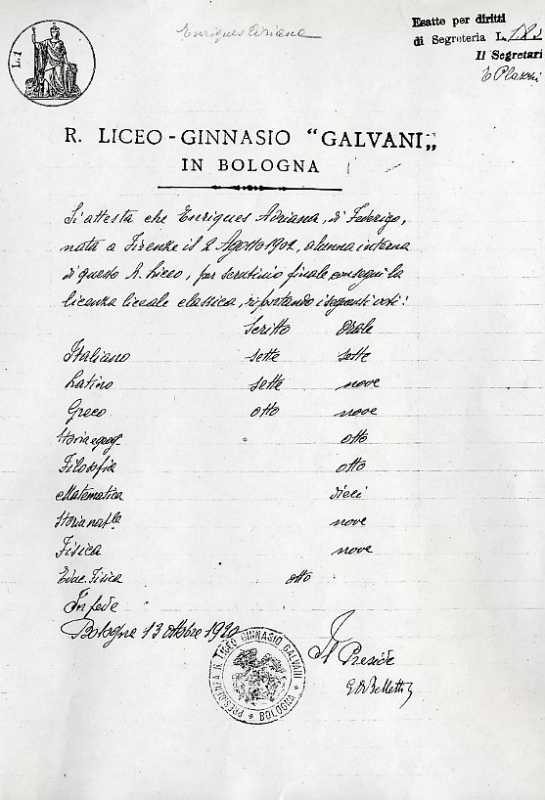 L.1
Enriques Adriana
Esatte per diritti
di Segreteria L.
Il Segretari
R. LICEO - GINNASIO "GALVANI„
IN BOLOGNA
Si attesta che Enriques Adriana, di Federigo,
nata a Firenze il 2 Agosto 1902, alunna interna
di questo R. Liceo, per scrutinio finale, conseguì la
licenza liceale classica, riportando i seguenti voti:
Scritto Orale
Italiano sette sette
Latino sette nove
Greco otto nove
Storia e geog. otto
Filosofia otto
Matematica dieci
Storia nat.le nove
Fisica nove
Educ. Fisica otto
In fede
Bologna 13 ottobre 1920
PRESIDENZA R. LICEO GINNASIO GALVANI * BOLOGNA *
Il Preside